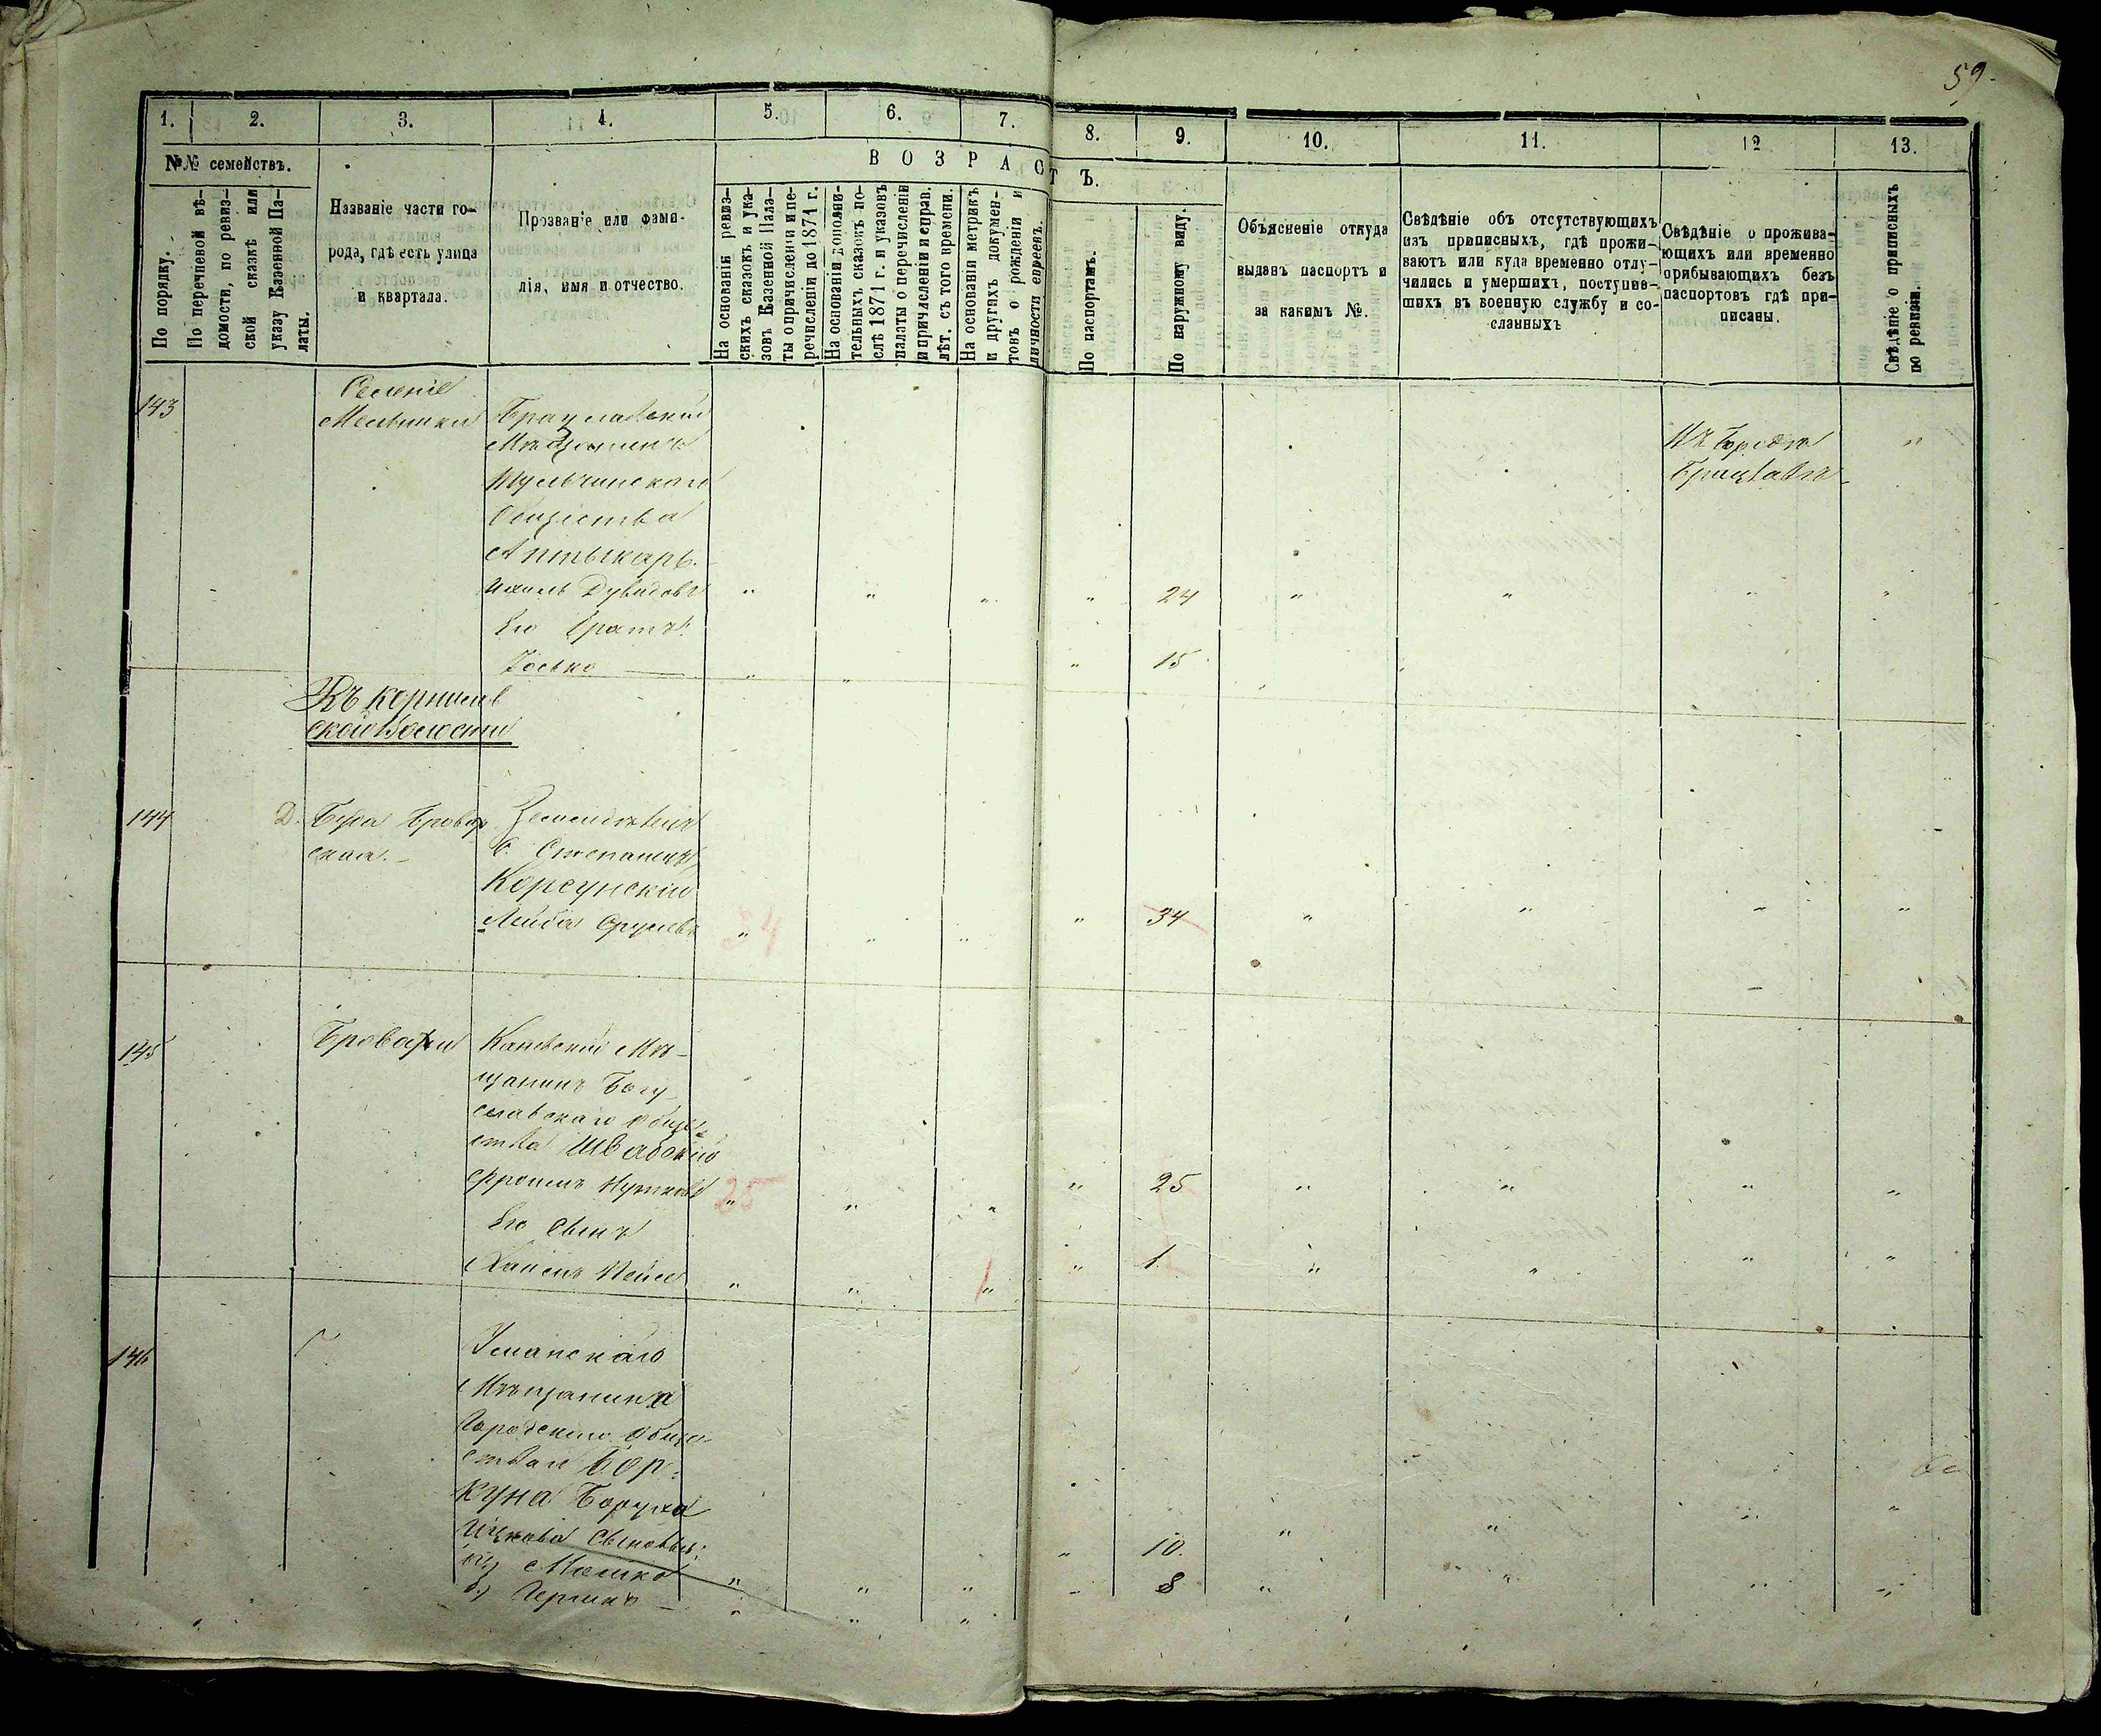 59.
1. 2. 3. 4. 5. 6. 7. 8. 9. 10. 11. 12 13.
№№ семействъ.
По порядку.
По перечневой вѣ-
домости, по ревиз-
ской сказкѣ или
указу Казенной Па-
латы.
Названіе части го-
рода, гдѣ есть улица
и квартала.
Прозваніе или фами-
лія, имя и отчество.
ВОЗРАСТЪ.
На основаніи ревиз-
скихъ сказокъ и ука-
зовъ Казенной Пала-
ты о причисленіи и пе-
речисленіи до 1871 г.
На основаніи дополни-
тельныхъ сказокъ по-
слѣ 1871 г. и указовъ
палаты о перечисленіи
и причисленіи и справ.
лѣт. съ того времени.
На основаніи метрикъ
и другихъ докумен-
товъ о рожденіи и
личности евреевъ.
По паспортамъ.
По наружному виду.
Объясненіе откуда
выданъ паспортъ и
за какимъ №.
Свѣдѣніе объ отсутствующихъ
изъ приписныхъ, гдѣ прожи-
ваютъ или куда временно отлу-
чились и умершихъ, поступив-
шихъ въ военную службу и со-
сланныхъ
Свѣдѣніе о прожива-
ющихъ или временно
прибывающихъ безъ
паспортовъ гдѣ при-
писаны.
Свѣдѣніе о приписныхъ
по ревизіи.
143
Селеніе
Мельники
Брацлавскій
Мѣщанинъ
Тульчинскаго
Общества
Аптыкарь.
Ихиль Дувидовъ " " " " 24 " " " "
Его братъ
Іосько " " " 15 "
Въ Городѣ
Брацлавѣ "
Къ Корнилов
ской Волости
144
Д. Буда Бровар
ская.
Земледѣлецъ
с. Степанецъ
Корсунскій
Лейба Сруневъ " 34 " " " 34 " " " "
145
Бровахи
Каневскій Мѣ-
щанинъ Богу-
славскаго Обще-
ства Швабскій
Фроимъ Нутковъ 25 " " " " 25 " " " "
Его Сынъ
Хаимъ Мейсе " " 1 " " 1 " " " "
146
"
Уманскаго
Мѣщанина
Городскаго Обще-
ства Бор-
куна Боруха
Ицкова Сыновья:
а) Мошко " " " " 10. " " " "
б) Гершко " " " " 8 " " " "